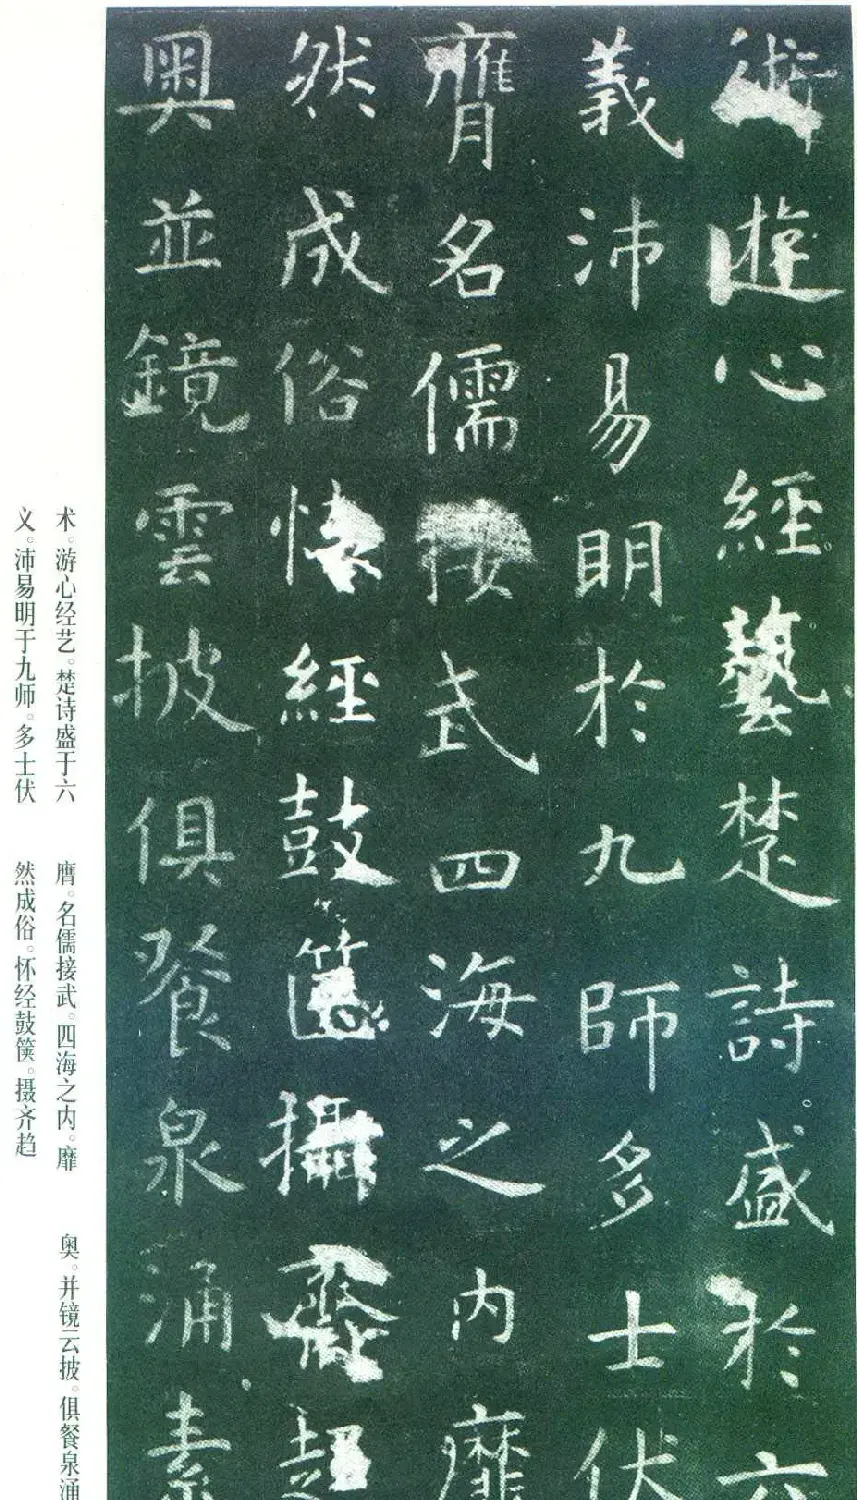 術遊心經藝楚詩盛於六
義沛易明於九師多士伏
膺名儒接武四海之内靡
然成俗懷經鼓篋攝齊趍
奥並鏡雲披俱餐泉涌素
术。游心经艺。楚诗盛于六
义。沛易明于九师。多士伏
膺。名儒接武。四海之内。靡
然成俗。怀经鼓箧。摄齐趋
奥。并镜云披。俱餐泉涌